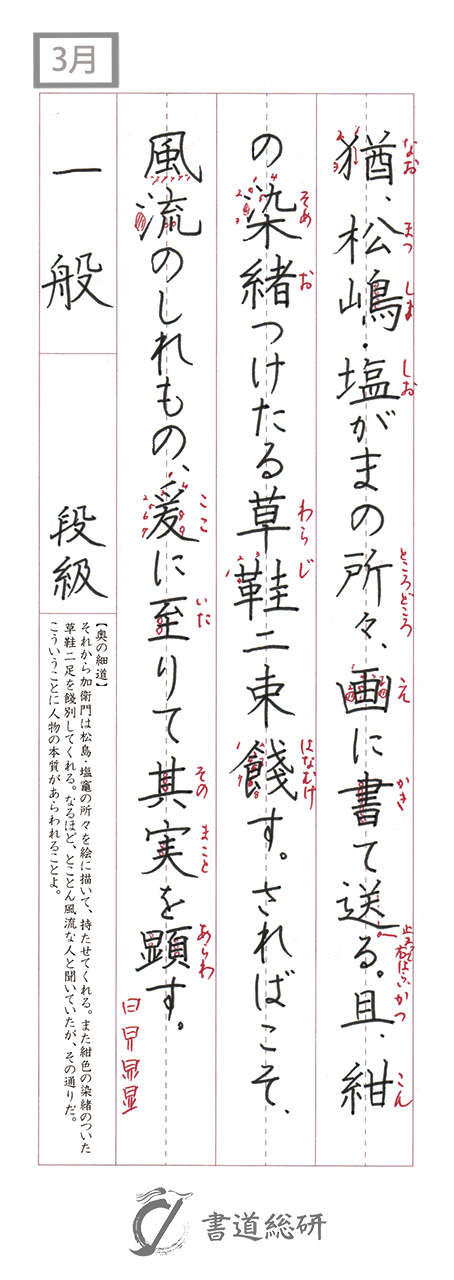 3月
猶、松嶋・塩がまの所々、画に書て送る。且、紺
なお まつ しま しお ところどころ え かき かつ こん
の染緒つけたる草鞋二束餞す。さればこそ、
そめ お わらじ はなむけ
風流のしれもの、爰に至りて其実を顕す。
ここ いた その まこと あらわ
一般
段級
【奥の細道】
それから加衛門は松島・塩竈の所々を絵に描いて、持たせてくれる。また紺色の染緒のついた
草鞋二足を餞別してくれる。なるほど、とことん風流な人と聞いていたが、その通りだ。
こういうことに人物の本質があらわれることよ。
書道総研